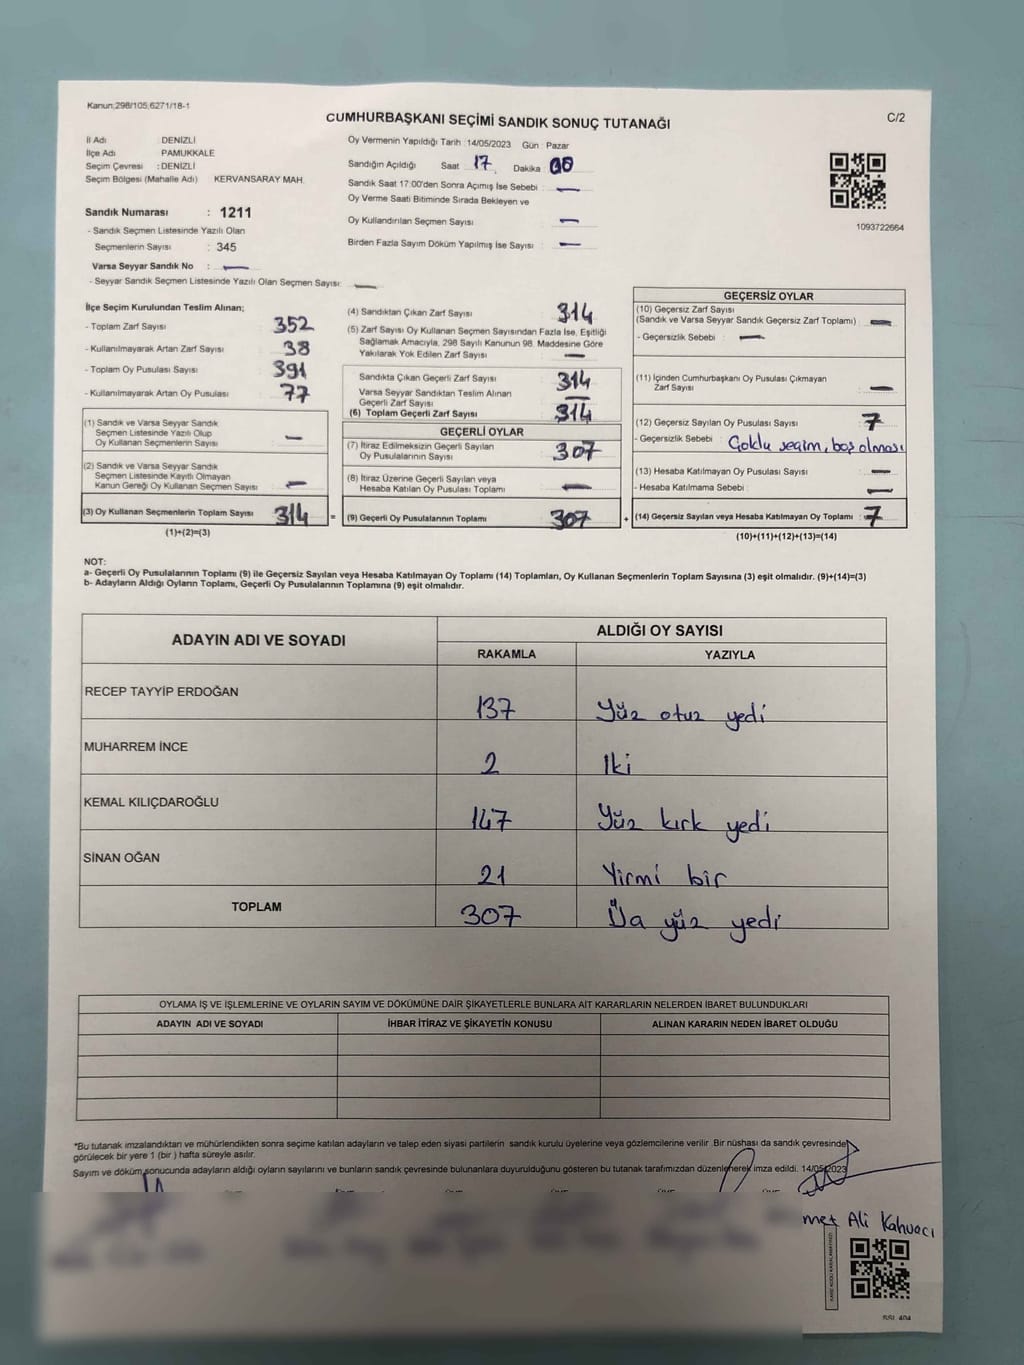 Kanun:298/105,6271/18-1
CUMHURBAŞKANI SEÇİMİ SANDIK SONUÇ TUTANAĞI
C/2
İl Adı : DENİZLİ
İlçe Adı : PAMUKKALE
Seçim Çevresi : DENİZLİ
Seçim Bölgesi (Mahalle Adı) KERVANSARAY MAH.
Oy Vermenin Yapıldığı Tarih : 14/05/2023 Gün : Pazar
Sandığın Açıldığı Saat 17 Dakika 00
Sandık Saat 17:00'den Sonra Açımış İse Sebebi : —
Oy Verme Saati Bitiminde Sırada Bekleyen ve
Oy Kullandırılan Seçmen Sayısı : —
Birden Fazla Sayım Döküm Yapılmış İse Sayısı : —
1093722664
Sandık Numarası : 1211
- Sandık Seçmen Listesinde Yazılı Olan
Seçmenlerin Sayısı : 345
Varsa Seyyar Sandık No : —
- Seyyar Sandık Seçmen Listesinde Yazılı Olan Seçmen Sayısı: —
İlçe Seçim Kurulundan Teslim Alınan;
- Toplam Zarf Sayısı 352
- Kullanılmayarak Artan Zarf Sayısı 38
- Toplam Oy Pusulası Sayısı 391
- Kullanılmayarak Artan Oy Pusulası 77
(1) Sandık ve Varsa Seyyar Sandık
Seçmen Listesinde Yazılı Olup
Oy Kullanan Seçmenlerin Sayısı —
(2) Sandık ve Varsa Seyyar Sandık
Seçmen Listesinde Kayıtlı Olmayan
Kanun Gereği Oy Kullanan Seçmen Sayısı —
(3) Oy Kullanan Seçmenlerin Toplam Sayısı 314 =
(1)+(2)=(3)
(4) Sandıktan Çıkan Zarf Sayısı 314
(5) Zarf Sayısı Oy Kullanan Seçmen Sayısından Fazla İse, Eşitliği
Sağlamak Amacıyla, 298 Sayılı Kanunun 98. Maddesine Göre
Yakılarak Yok Edilen Zarf Sayısı —
Sandıkta Çıkan Geçerli Zarf Sayısı 314
Varsa Seyyar Sandıktan Teslim Alınan
Geçerli Zarf Sayısı —
(6) Toplam Geçerli Zarf Sayısı 314
GEÇERLİ OYLAR
(7) İtiraz Edilmeksizin Geçerli Sayılan
Oy Pusulalarının Sayısı 307
(8) İtiraz Üzerine Geçerli Sayılan veya
Hesaba Katılan Oy Pusulası Toplamı —
(9) Geçerli Oy Pusulalarının Toplamı 307 +
GEÇERSİZ OYLAR
(10) Geçersiz Zarf Sayısı
(Sandık ve Varsa Seyyar Sandık Geçersiz Zarf Toplamı) : —
- Geçersizlik Sebebi : —
(11) İçinden Cumhurbaşkanı Oy Pusulası Çıkmayan
Zarf Sayısı —
(12) Geçersiz Sayılan Oy Pusulası Sayısı : 7
- Geçersizlik Sebebi : Çoklu seçim, boş olması
(13) Hesaba Katılmayan Oy Pusulası Sayısı : —
- Hesaba Katılmama Sebebi : —
(14) Geçersiz Sayılan veya Hesaba Katılmayan Oy Toplamı : 7
(10)+(11)+(12)+(13)=(14)
NOT:
a- Geçerli Oy Pusulalarının Toplamı (9) ile Geçersiz Sayılan veya Hesaba Katılmayan Oy Toplamı (14) Toplamları, Oy Kullanan Seçmenlerin Toplam Sayısına (3) eşit olmalıdır. (9)+(14)=(3)
b- Adayların Aldığı Oyların Toplamı, Geçerli Oy Pusulalarının Toplamına (9) eşit olmalıdır.
ADAYIN ADI VE SOYADI ALDIĞI OY SAYISI
RAKAMLA YAZIYLA
RECEP TAYYİP ERDOĞAN 137 Yüz otuz yedi
MUHARREM İNCE 2 Iki
KEMAL KILIÇDAROĞLU 147 Yüz kırk yedi
SİNAN OĞAN 21 Yirmi bir
TOPLAM 307 Üç yüz yedi
OYLAMA İŞ VE İŞLEMLERİNE VE OYLARIN SAYIM VE DÖKÜMÜNE DAİR ŞİKAYETLERLE BUNLARA AİT KARARLARIN NELERDEN İBARET BULUNDUKLARI
ADAYIN ADI VE SOYADI İHBAR İTİRAZ VE ŞİKAYETİN KONUSU ALINAN KARARIN NEDEN İBARET OLDUĞU
*Bu tutanak imzalandıktan ve mühürlendikten sonra seçime katılan adayların ve talep eden siyasi partilerin sandık kurulu üyelerine veya gözlemcilerine verilir .Bir nüshası da sandık çevresinde
görülecek bir yere 1 (bir ) hafta süreyle asılır.
Sayım ve döküm sonucunda adayların aldığı oyların sayılarını ve bunların sandık çevresinde bulunanlara duyurulduğunu gösteren bu tutanak tarafımızdan düzenlenerek imza edildi. 14/05/2023
met Ali Kahveci